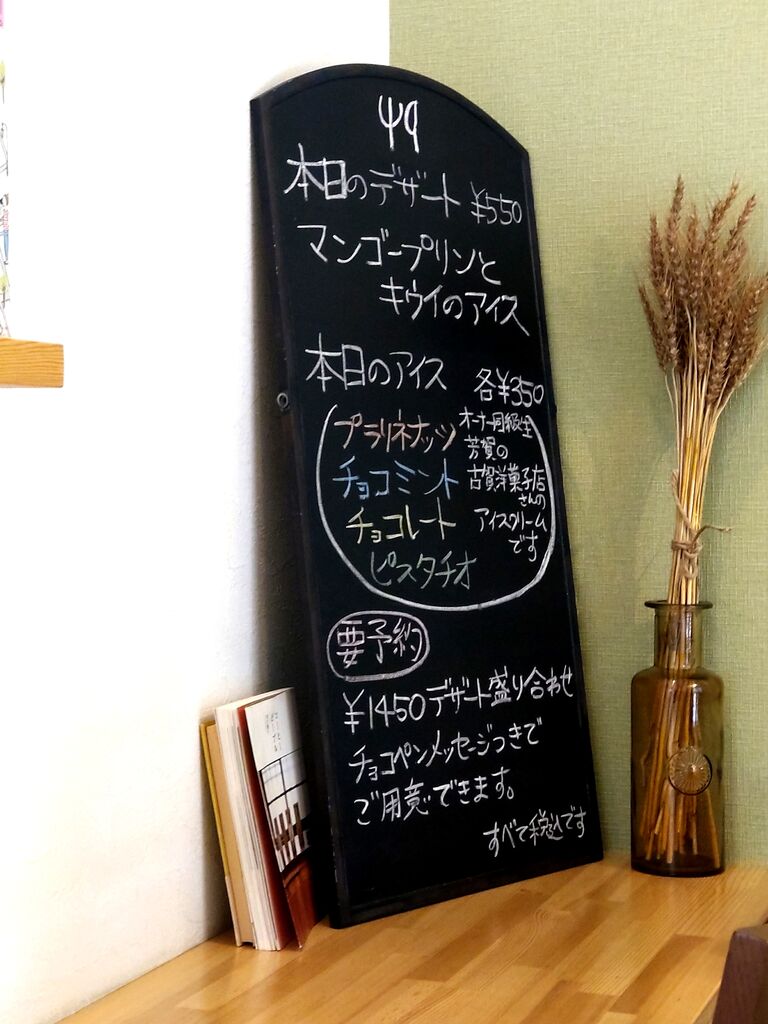 本日のデザート ¥550
マンゴープリンと
キウイのアイス
本日のアイス 各¥350
プラリネナッツ
チョコミント
チョコレート
ピスタチオ
オーナー同級生
芳賀の
古賀洋菓子店
さんの
アイスクリーム
です
要予約
¥1450デザート盛り合わせ
チョコペンメッセージつきで
ご用意できます。
すべて税込です